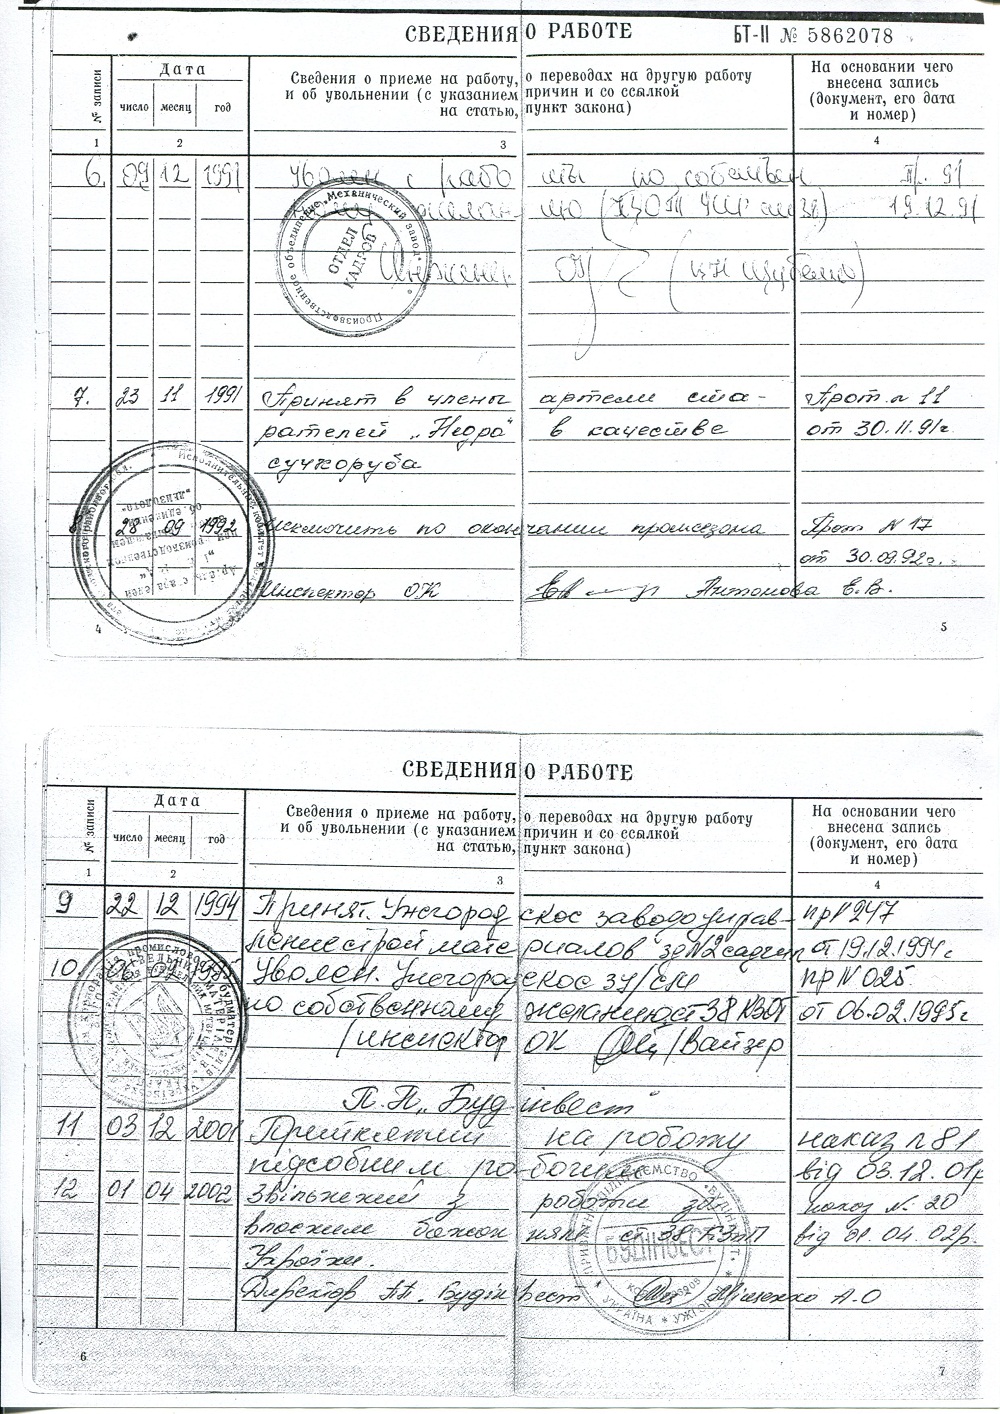 СВЕДЕНИЯ О РАБОТЕ БТ-II № 5862078
№ записи
Дата
число месяц год
Сведения о приеме на работу, о переводах на другую работу
и об увольнении (с указанием причин и со ссылкой
на статью, пункт закона)
На основании чего
внесена запись
(документ, его дата
и номер)
1 2 3 4
6. 09 12 1991 Уволен с рабо ты по собствен Пр. 91
19.12.91
Инженер ОК
Производственное объединение „Механический завод"
ОТДЕЛ
КАДРОВ
7. 23 11 1991 Принят в члены артели ста- Прот. № 11
рателей „Недра" в качестве от 30.11.91г.
сучкоруба
8. 28 09 1992 Исключить по окончании промсезона Прот № 17
от 30.09.92г.
Инспектор ОК Антонова Е.В.
4 5
СВЕДЕНИЯ О РАБОТЕ
№ записи
Дата
число месяц год
Сведения о приеме на работу, о переводах на другую работу
и об увольнении (с указанием причин и со ссылкой
на статью, пункт закона)
На основании чего
внесена запись
(документ, его дата
и номер)
1 2 3 4
9 22 12 1994 Принят. Ужгород ское заводоуправ- пр№247
ление строймате риалов от 19.12.1994г
10. Уволен. Ужгород ское ЗУ/СМ пр N 025
по собственному желанию ст 38 КЗОТ от 06.02.1995г
/инспектор ОК /Вайзер
П.П. „Буд інвест"
11 03 12 2001 Прийнятий на роботу наказ №81
підсобним ро бочим від 03.12.01р
12 01 04 2002 Звільнений з роботи за наказ № 20
власним бажан ням ст 38 КЗпП від 01.04.02р.
України.
Директор ПП. Будін вест Міщенко А.О
БУДІНВЕСТ
УКРАЇНА * УЖГОРОД
6 7